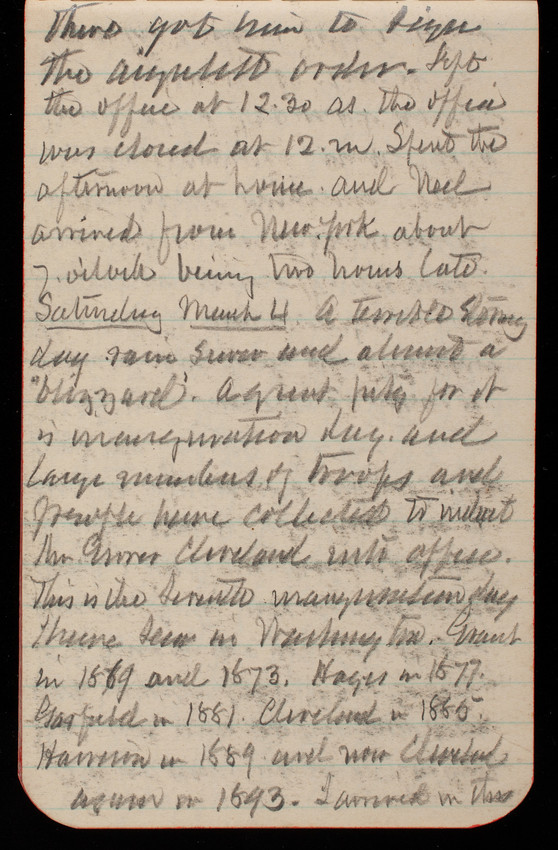 there got him to sign
the order. Left
the office at 12.30 as the office
was closed at 12. m. Spent the
afternoon at home and Ned
arrived from New York about
7. o'clock being two hours late.
Saturday March 4. A terrible stormy
day rain snow and almost a
"blizzard". A great pity for it
is inauguration day. and
large numbers of troops and
people have collected to induct
Mr. Grover Cleveland into office.
This is the seventh inauguration day
I have seen in Washington. Grant
in 1869 and 1873. Hayes in 1877.
Garfield in 1881. Cleveland in 1885.
Harrison in 1889 and now Cleveland
again in 1893. I arrived in this